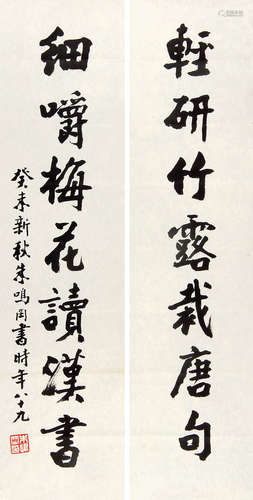 輕研竹露裁唐句
細嚼梅花讀漢書
癸未新秋朱鳴岡書時年八十九